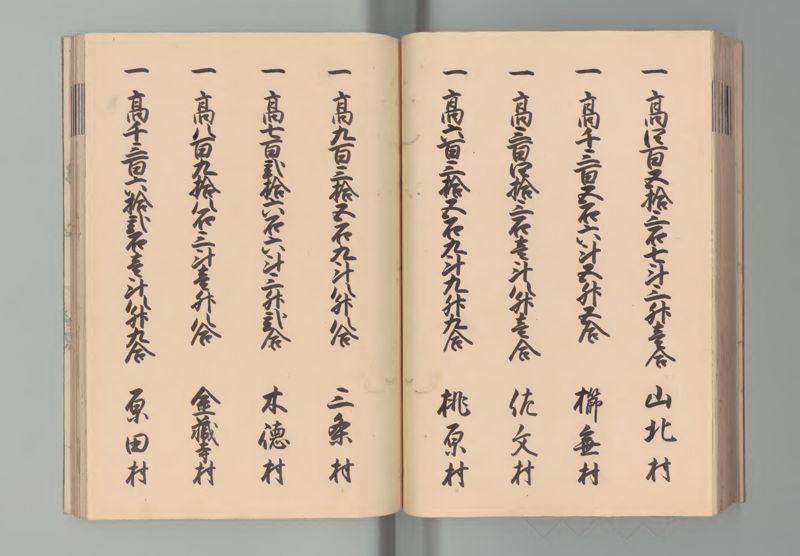 一 高四百五拾三石七斗三升壱合 山北村
一 高千三百五石六斗五升五合 櫛無村
一 高三百四拾三石壱斗八升壱合 佐文村
一 高六百三拾五石九斗九升九合 桃原村
一 高九百三拾五石九斗八升八合 三条村
一 高七百弐拾六石六斗三升弐合 木徳村
一 高八百九拾八石三斗壱升八合 金蔵寺村
一 高千三百六拾弐石壱斗八升九合 原田村